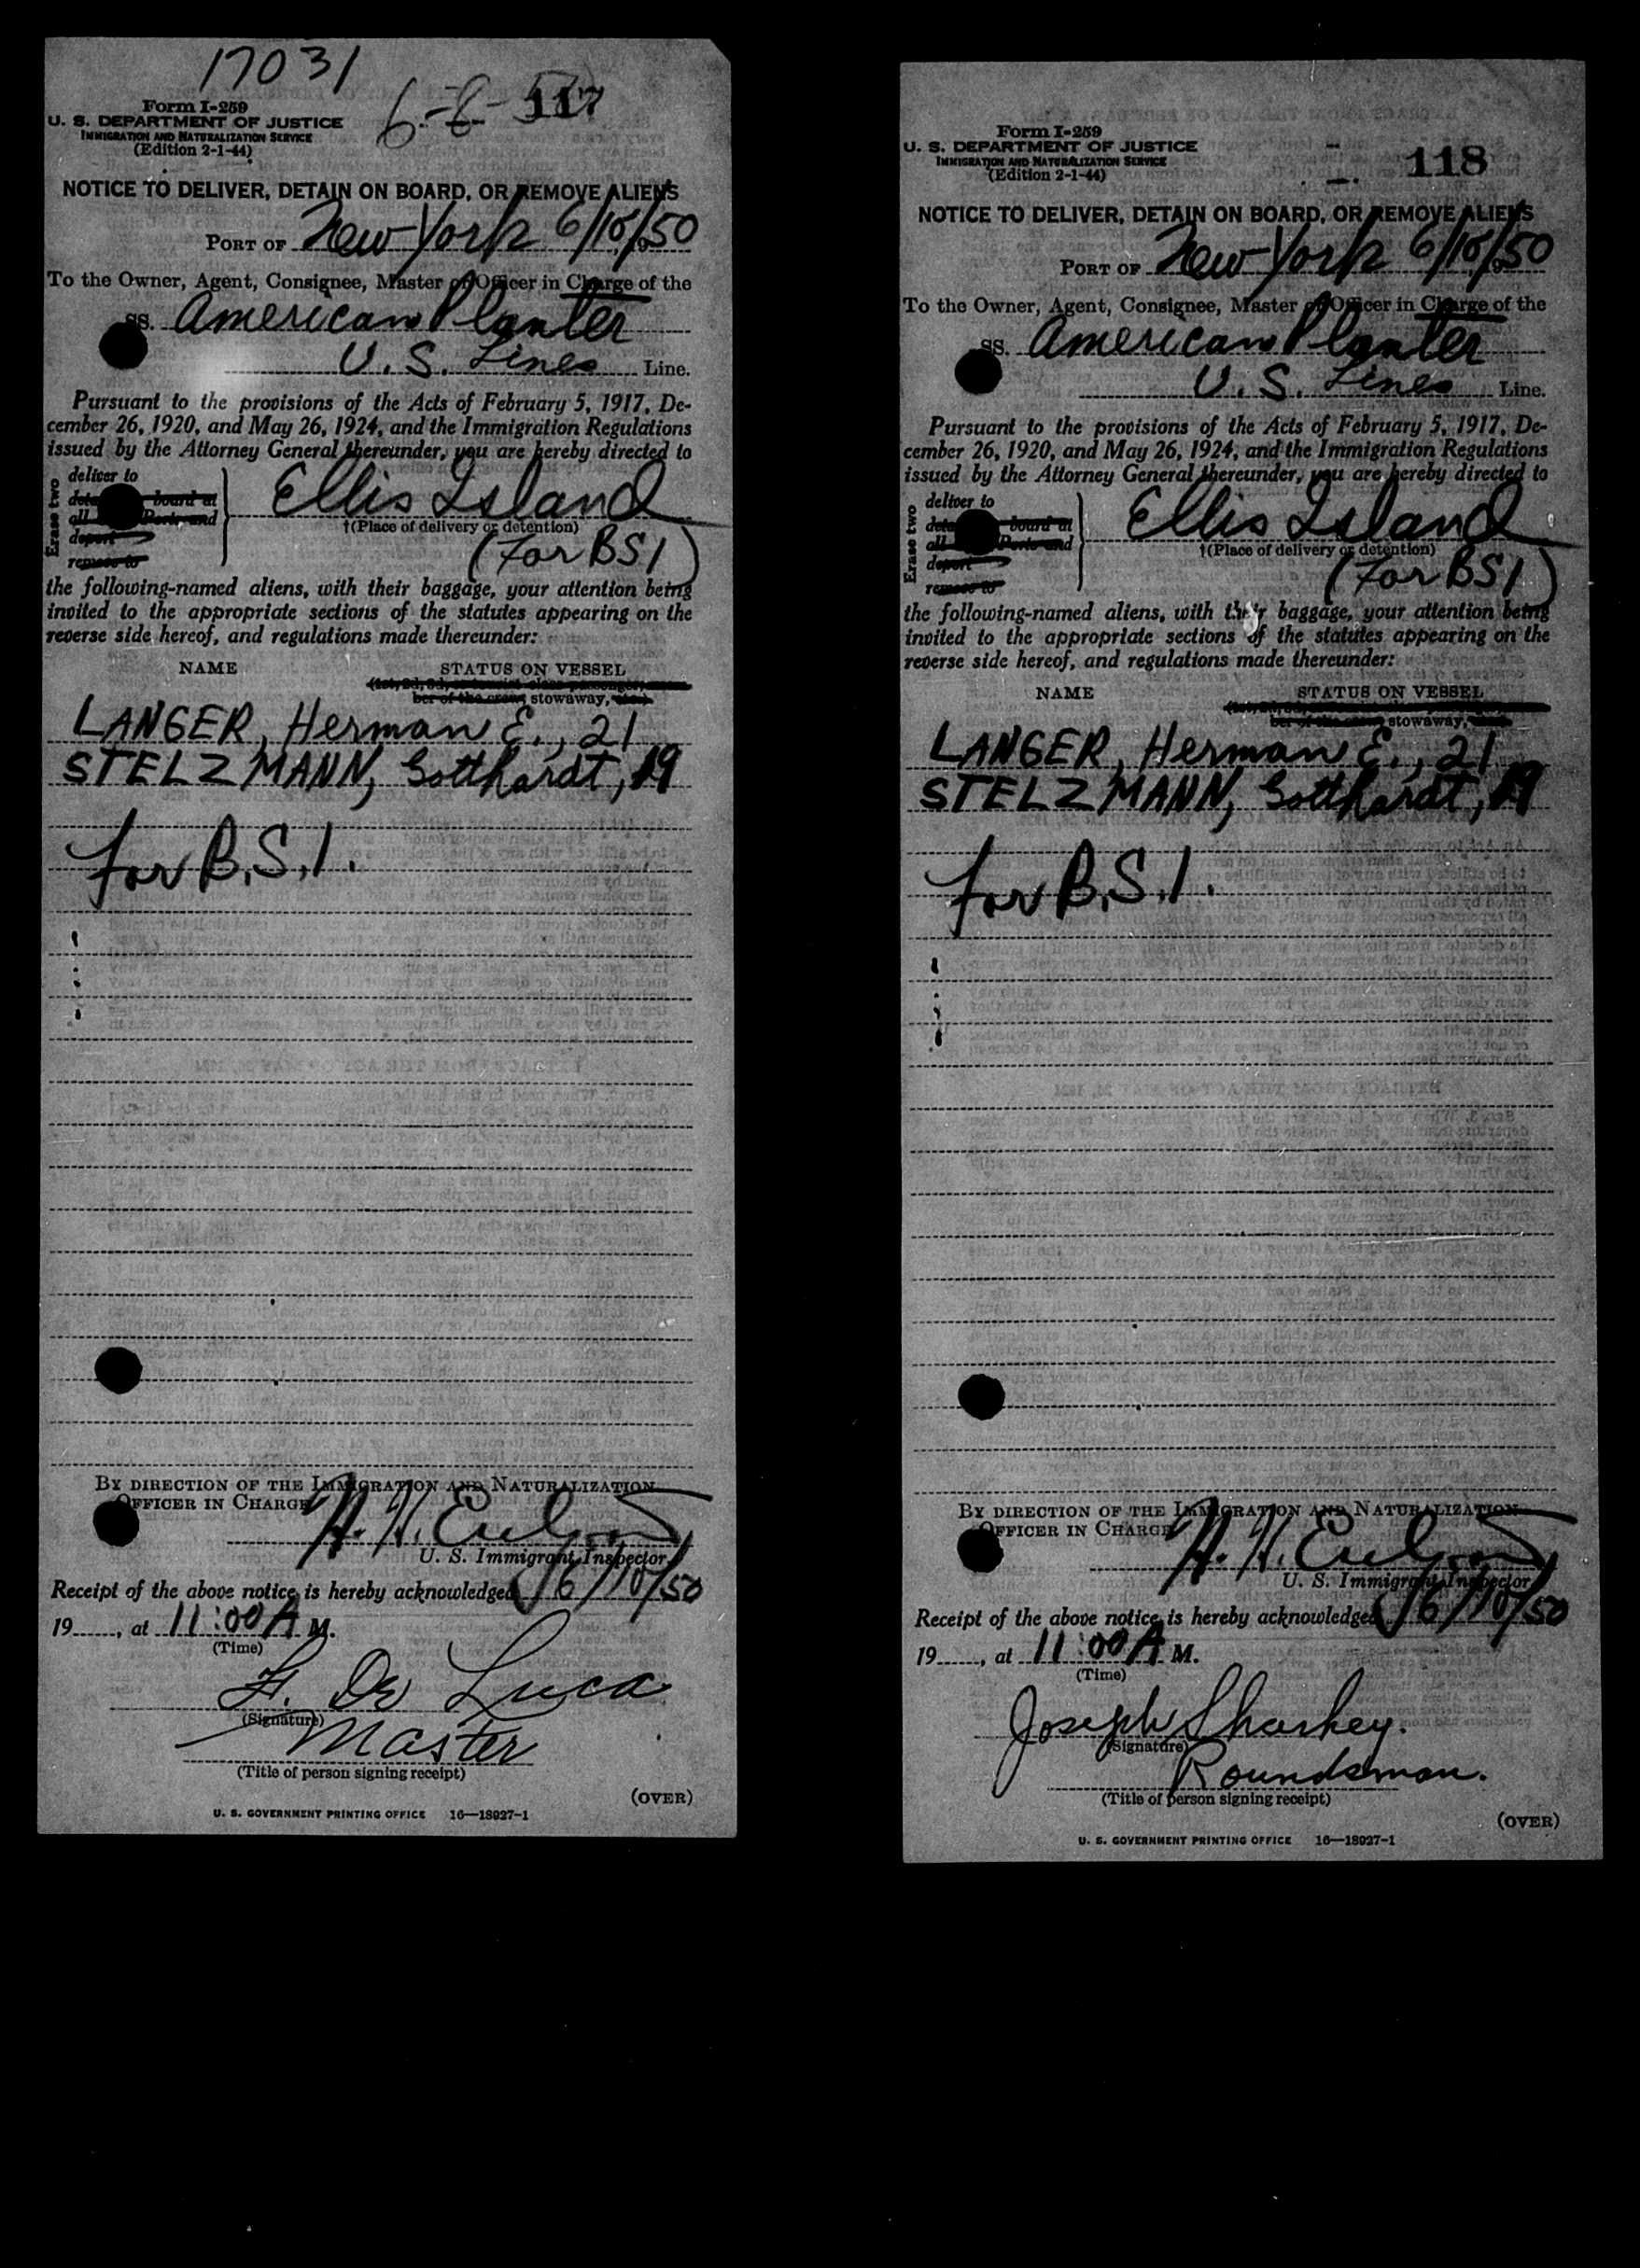 17031
6-8-50
117
Form I-259
U. S. DEPARTMENT OF JUSTICE
IMMIGRATION AND NATURALIZATION SERVICE
(Edition 2-1-44)
NOTICE TO DELIVER, DETAIN ON BOARD, OR REMOVE ALIENS
PORT OF New York 6/10/50
To the Owner, Agent, Consignee, Master or Officer in Charge of the
SS. American Planter
U.S. Lines Line.
Pursuant to the provisions of the Acts of February 5, 1917, De-
cember 26, 1920, and May 26, 1924, and the Immigration Regulations
issued by the Attorney General thereunder, you are hereby directed to
Erase two
deliver to
board at
all Ports and
deport
remove to
Ellis Island
†(Place of delivery or detention)
(For BSI)
the following-named aliens, with their baggage, your attention being
invited to the appropriate sections of the statutes appearing on the
reverse side hereof, and regulations made thereunder:
NAME STATUS ON VESSEL
ber of the crew, stowaway,
LANGER, Herman E., 21
STELZMANN, Gotthardt, 19
for B.S.I.
BY DIRECTION OF THE IMMIGRATION AND NATURALIZATION
OFFICER IN CHARGE
U. S. Immigrant Inspector
Receipt of the above notice is hereby acknowledged 6/10/50
19....., at 11:00 A M.
(Time)
F. De Luca
(Signature)
Master
(Title of person signing receipt)
(OVER)
U. S. GOVERNMENT PRINTING OFFICE 16—18927-1
118
Form I-259
U. S. DEPARTMENT OF JUSTICE
IMMIGRATION AND NATURALIZATION SERVICE
(Edition 2-1-44)
NOTICE TO DELIVER, DETAIN ON BOARD, OR REMOVE ALIENS
PORT OF New York 6/10/50
To the Owner, Agent, Consignee, Master or Officer in Charge of the
SS. American Planter
U.S. Lines Line.
Pursuant to the provisions of the Acts of February 5, 1917, De-
cember 26, 1920, and May 26, 1924, and the Immigration Regulations
issued by the Attorney General thereunder, you are hereby directed to
Erase two
deliver to
board at
all Ports and
deport
remove to
Ellis Island
†(Place of delivery or detention)
(For BSI)
the following-named aliens, with their baggage, your attention being
invited to the appropriate sections of the statutes appearing on the
reverse side hereof, and regulations made thereunder:
NAME STATUS ON VESSEL
stowaway,
LANGER, Herman E., 21
STELZMANN, Gotthardt, 19
for B.S.I.
BY DIRECTION OF THE IMMIGRATION AND NATURALIZATION
OFFICER IN CHARGE
U. S. Immigrant Inspector
Receipt of the above notice is hereby acknowledged 6/10/50
19....., at 11:00 A M.
(Time)
Joseph Sharkey.
(Signature)
Roundsman.
(Title of person signing receipt)
(OVER)
U. S. GOVERNMENT PRINTING OFFICE 16—18927-1